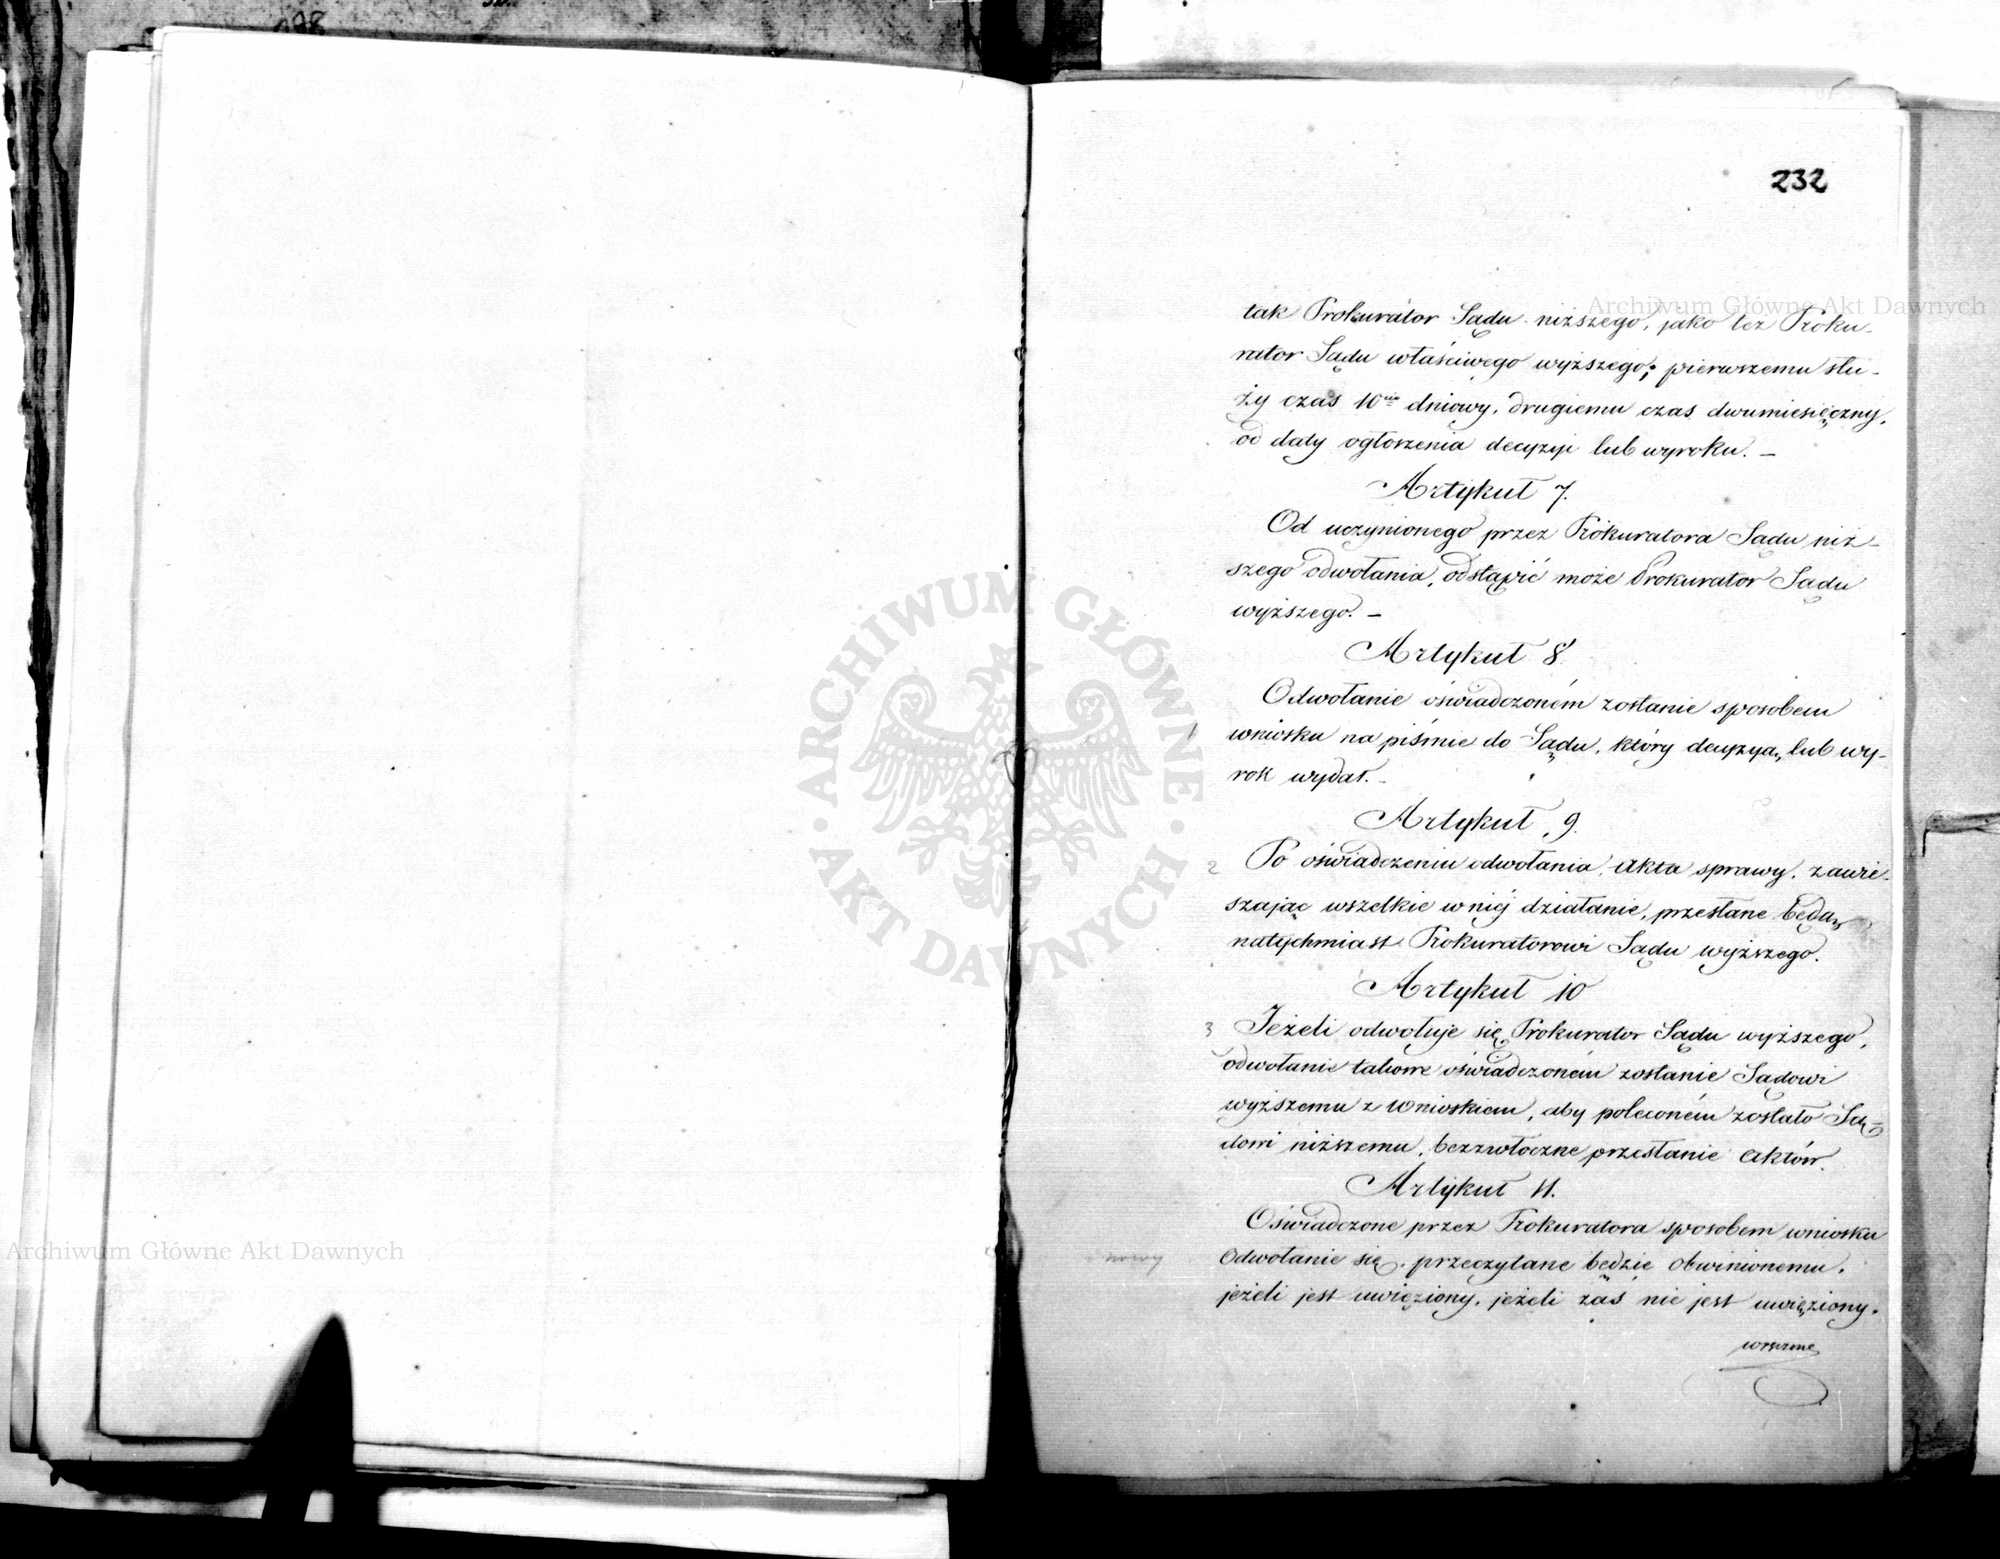 232
tak Prokurator Sądu niższego, jako też Proku-
rator Sądu właściwego wyższego; pierwszemu słu-
ży czas 10cio dniowy, drugiemu czas dwumiesięczny,
od daty ogłoszenia decyzji lub wyroku. —
Artykuł 7.
Od uczynionego przez Prokuratora Sądu niż-
szego odwołania, odstąpić może Prokurator Sądu
wyższego. —
Artykuł 8.
Odwołanie oświadczoném zostanie sposobem
1 wniosku na piśmie do Sądu, który decyzyą, lub wy-
rok wydał. -
Artykuł 9.
2 Po oświadczeniu odwołania, akta sprawy, zawie-
szając wszelkie w niéj działanie, przesłane będą,
natychmiast Prokuratorowi Sądu wyższego.
Artykuł 10
3 Jeżeli odwołuje się Prokurator Sądu wyższego,
odwołanie takowe oświadczoném zostanie Sądowi
wyższemu z wnioskiem, aby poleconém zostało Są-
dowi niższemu, bezzwłoczne przesłanie aktów.
Artykuł 11.
Oświadczone przez Prokuratora sposobem wniosku
nowy odwołanie się, przeczytane będzie obwinionemu,
jeżeli jest uwięziony, jeżeli zaś nie jest uwięziony,
Archiwum Główne Akt Dawnych
Archiwum Główne Akt Dawnych
ARCHIWUM GŁÓWNE · AKT DAWNYCH ·